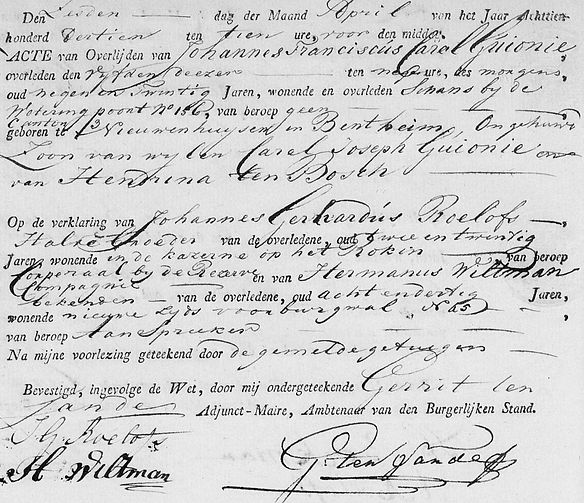 Den Zesden dag der Maand April van het Jaar Achttien-
honderd Dertien ten tien ure, voor den middag,
ACTE van Overlijden van Johannes Franciscus Carel Guionie,
overleden den vyfden deezer ten negen ure, des morgens,
oud negen en twintig Jaren, wonende en overleden Schans by de
Wetering poort No 186, van beroep geen
Canton
geboren te Nieuwenhuysen in Bentheim, Ongehuwd
Zoon van wylen Carel Joseph Guionie en
van Hendrina ten Bosch
Op de verklaring van Johannes Gerhardus Roelofs,
Halve Broeder van de overledene, oud twee en twintig
Jaren, wonende in de kazerne op het Rokin van beroep
Corporaal by de Reserve en van Hermanus Wiltman
Compagnie
bekenden van de overledene, oud acht en dertig Jaren,
wonende nieuwe zyds voorburgwal No 45,
van beroep Aanspreeker
Na mijne voorlezing geteekend door de gemelde getuigen
Bevestigd, ingevolge de Wet, door mij ondergeteekende Gerrit ten
Zande Adjunct-Maire, Ambtenaar van den Burgerlijken Stand.
J G Roelofs
H Wiltman
G. ten Sande